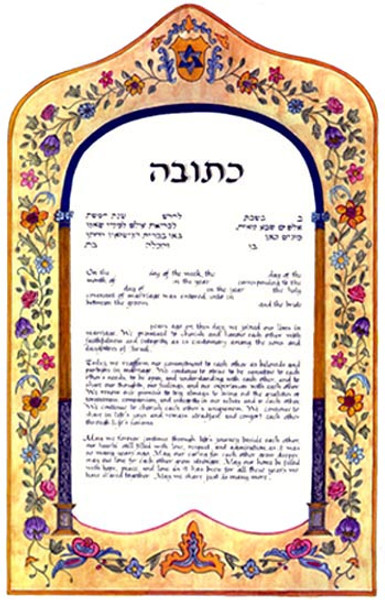 כתובה
ב בשבת לחדש שנת חמשת
אלפים שבע מאות לבריאת עולם למנין שאנו
מונים כאן באו בברית הנישואין החתן
בן והכלה בת
On the day of the week, the day of the
month of in the year corresponding to the
day of in the year the holy
covenant of marriage was entered into in
between the groom and the bride
years ago on this day, we joined our lives in
marriage. We promised to cherish and honour each other with
faithfulness and integrity as is customary among the sons and
daughters of Israel.
Today, we reaffirm our commitment to each other as beloveds and
partners in marriage. We continue to strive to be sensitive to each
other's needs, to be open and understanding with each other, and to
share our thoughts, our feelings, and our experiences with each other.
We renew our promise to try always to bring out the qualities of
forgiveness, compassion, and integrity in our selves and in each other.
We continue to cherish each other's uniqueness. We continue to
share in life's joys and remain steadfast and comfort each other
through life's sorrows.
May we forever continue through life's journey beside each other,
our hearts still filled with love, respect, and admiration, as it was
so many years ago. May our caring for each other grow deeper,
may our love for each other grow stronger. May our home be filled
with hope, peace, and love as it has been for all these years we
have shared together. May we share just as many more.